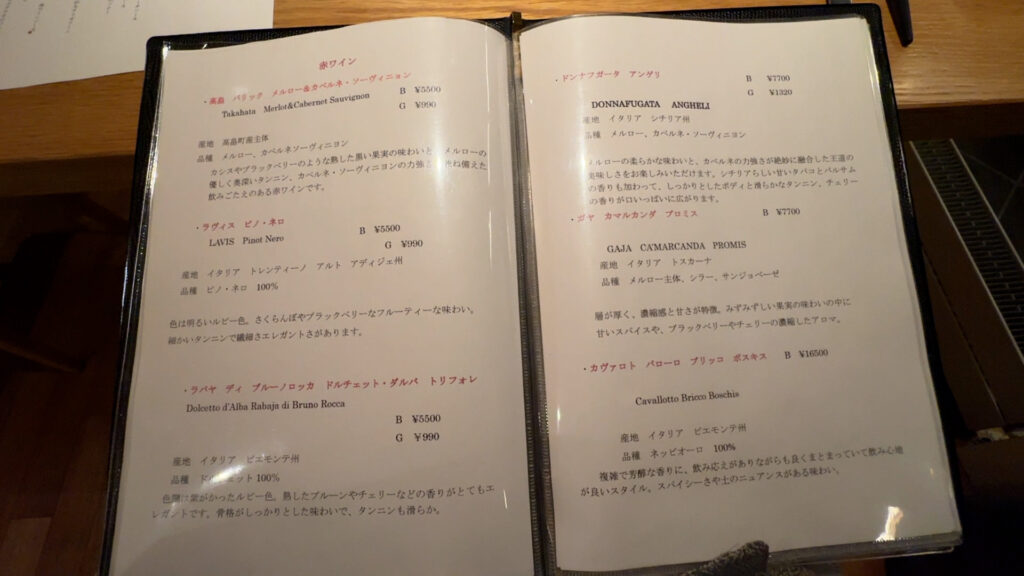 赤ワイン
・高畠　バリック　メルロー＆カベルネ・ソーヴィニョン
Takahata　Merlot&Cabernet Sauvignon
B　¥5500
G　¥990
産地　高畠町産主体
品種　メルロー、カベルネソーヴィニヨン
カシスやブラックベリーのような熟した黒い果実の味わいと、メルローの
優しく奥深いタンニン、カベルネ・ソーヴィニヨンの力強さ　ね備えた
飲みごたえのある赤ワインです。
・ラヴィス　ピノ・ネロ
LAVIS　Pinot Nero
B　¥5500
G　¥990
産地　イタリア　トレンティーノ　アルト　アディジェ州
品種　ピノ・ネロ　100%
色は明るいルビー色。さくらんぼやブラックベリーなフルーティーな味わい。
細かいタンニンで繊細さエレガントさがあります。
・ラバヤ　ディ　ブルーノロッカ　ドルチェット・ダルバ　トリフォレ
Dolcetto d'Alba Rabaja di Bruno Rocca
B　¥5500
G　¥990
産地　イタリア　ピエモンテ州
品種　ドルチェット100%
色調は紫がかったルビー色。熟したプルーンやチェリーなどの香りがとてもエ
レガントです。骨格がしっかりとした味わいで、タンニンも滑らか。
・ドンナフガータ　アンゲリ
B　¥7700
G　¥1320
DONNAFUGATA　ANGHELI
産地　イタリア　シチリア州
品種　メルロー、カベルネ・ソーヴィニヨン
メルローの柔らかな味わいと、カベルネの力強さが絶妙に融合した王道の
美味しさをお楽しみいただけます。シチリアらしい甘いタバコとバルサム
の香りも加わって、しっかりとしたボディと滑らかなタンニン、チェリー
の香りが口いっぱいに広がります。
・ガヤ　カマルカンダ　プロミス
B　¥7700
GAJA　CA'MARCANDA　PROMIS
産地　イタリア　トスカーナ
品種　メルロー主体、シラー、サンジョベーゼ
層が厚く、濃縮感と甘さが特徴。みずみずしい果実の味わいの中に
甘いスパイスや、ブラックベリーやチェリーの濃縮したアロマ。
・カヴァロト　バローロ　ブリッコ　ボスキス　B　¥16500
Cavallotto Bricco Boschis
産地　イタリア　ピエモンテ州
品種　ネッビオーロ　100%
複雑で芳醇な香りに、飲み応えがありながらも良くまとまっていて飲み心地
が良いスタイル、スパイシーさや土のニュアンスがある味わい。